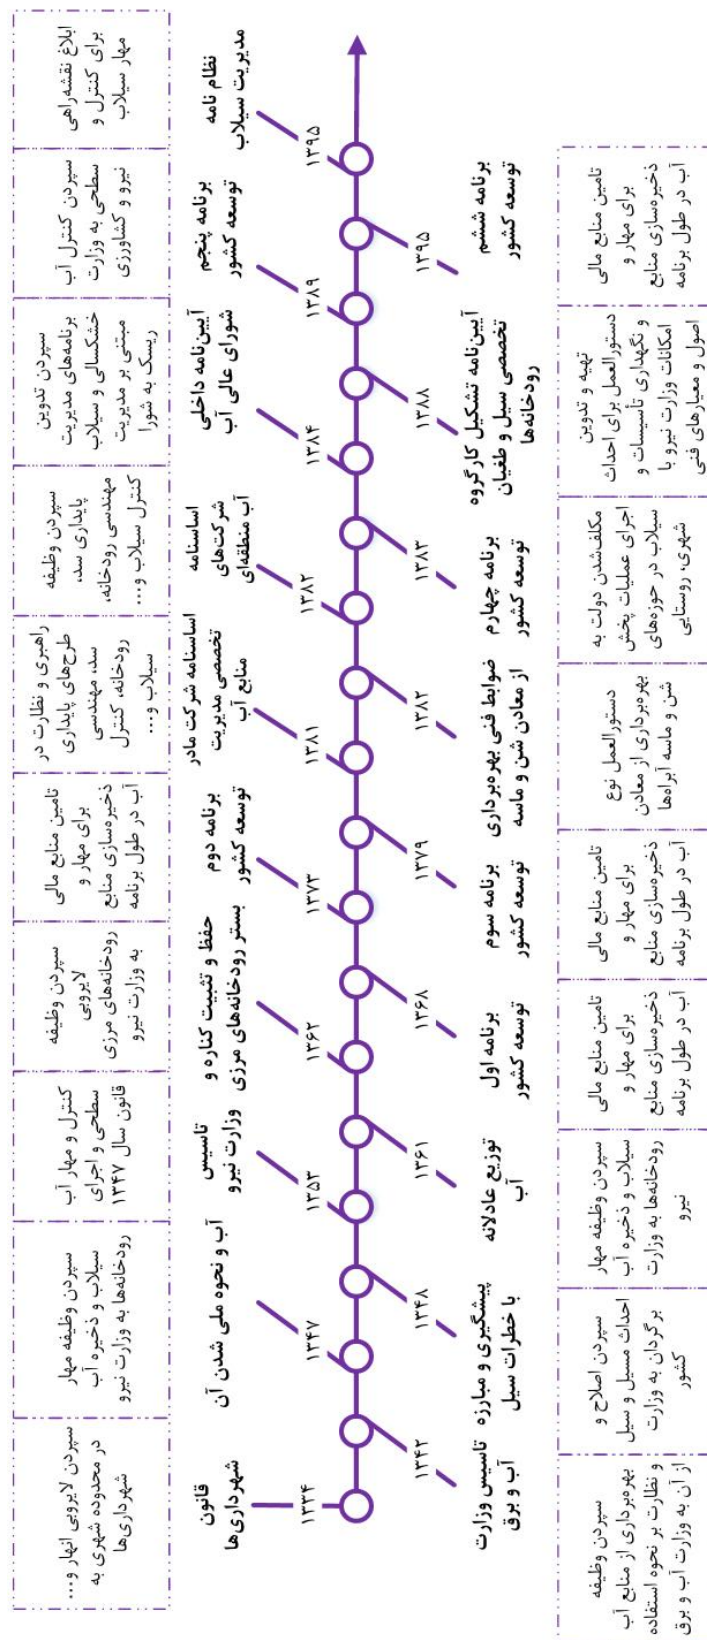 سپردن لایروبی انهار و...
در محدوده شهری به
شهرداری‌ها
سپردن وظیفه مهار
سیلاب و ذخیره آب
رودخانه‌ها به وزارت نیرو
کنترل و مهار آب
سطحی و اجرای
قانون سال ۱۳۴۷
سپردن وظیفه
لایروبی
رودخانه‌های مرزی
به وزارت نیرو
تامین منابع مالی
برای مهار و
ذخیره‌سازی منابع
آب در طول برنامه
راهبری و نظارت در
طرح‌های پایداری
سد، مهندسی
رودخانه، کنترل
سیلاب و...
سپردن وظیفه
پایداری سد،
مهندسی رودخانه،
کنترل سیلاب و...
سپردن تدوین
برنامه‌های مدیریت
خشکسالی و سیلاب
مبتنی بر مدیریت
ریسک به شورا
سپردن کنترل آب
سطحی به وزارت
نیرو و کشاورزی
ابلاغ نقشه‌راهی
برای کنترل و
مهار سیلاب
قانون
شهرداری‌ها
۱۳۳۴
آب و نحوه ملی شدن آن
۱۳۴۷
تاسیس
وزارت نیرو
۱۳۵۳
حفظ و تثبیت کناره و
بستر رودخانه‌های مرزی
۱۳۶۲
برنامه دوم
توسعه کشور
۱۳۷۳
اساسنامه شرکت مادر
تخصصی مدیریت
منابع آب
۱۳۸۱
اساسنامه
شرکت‌های
آب منطقه‌ای
۱۳۸۲
آیین‌نامه داخلی
شورای عالی آب
۱۳۸۴
برنامه پنجم
توسعه کشور
۱۳۸۹
نظام نامه
مدیریت سیلاب
۱۳۹۵
۱۳۴۲
تاسیس وزارت
آب و برق
۱۳۴۸
پیشگیری و مبارزه
با خطرات سیل
۱۳۶۱
توزیع عادلانه
آب
۱۳۶۸
برنامه اول
توسعه کشور
۱۳۷۹
برنامه سوم
توسعه کشور
۱۳۸۲
ضوابط فنی بهره‌برداری
از معادن شن و ماسه
۱۳۸۳
برنامه چهارم
توسعه کشور
۱۳۸۸
آیین‌نامه تشکیل کارگروه
تخصصی سیل و طغیان
رودخانه‌ها
۱۳۹۵
برنامه ششم
توسعه کشور
سپردن وظیفه
بهره‌برداری از منابع آب
و نظارت بر نحوه استفاده
از آن به وزارت آب و برق
سپردن اصلاح و
احداث مسیل و سیل
برگردان به وزارت
کشور
سپردن وظیفه مهار
سیلاب و ذخیره آب
رودخانه‌ها به وزارت
نیرو
تامین منابع مالی
برای مهار و
ذخیره‌سازی منابع
آب در طول برنامه
تامین منابع مالی
برای مهار و
ذخیره‌سازی منابع
آب در طول برنامه
دستورالعمل نوع
بهره‌برداری از معادن
شن و ماسه آبراه‌ها
مکلف‌شدن دولت به
اجرای عملیات پخش
سیلاب در حوزه‌های
شهری، روستایی
تهیه و تدوین
دستورالعمل برای احداث
و نگهداری تأسیسات و
امکانات وزارت نیرو با
اصول و معیارهای فنی
تامین منابع مالی
برای مهار و
ذخیره‌سازی منابع
آب در طول برنامه